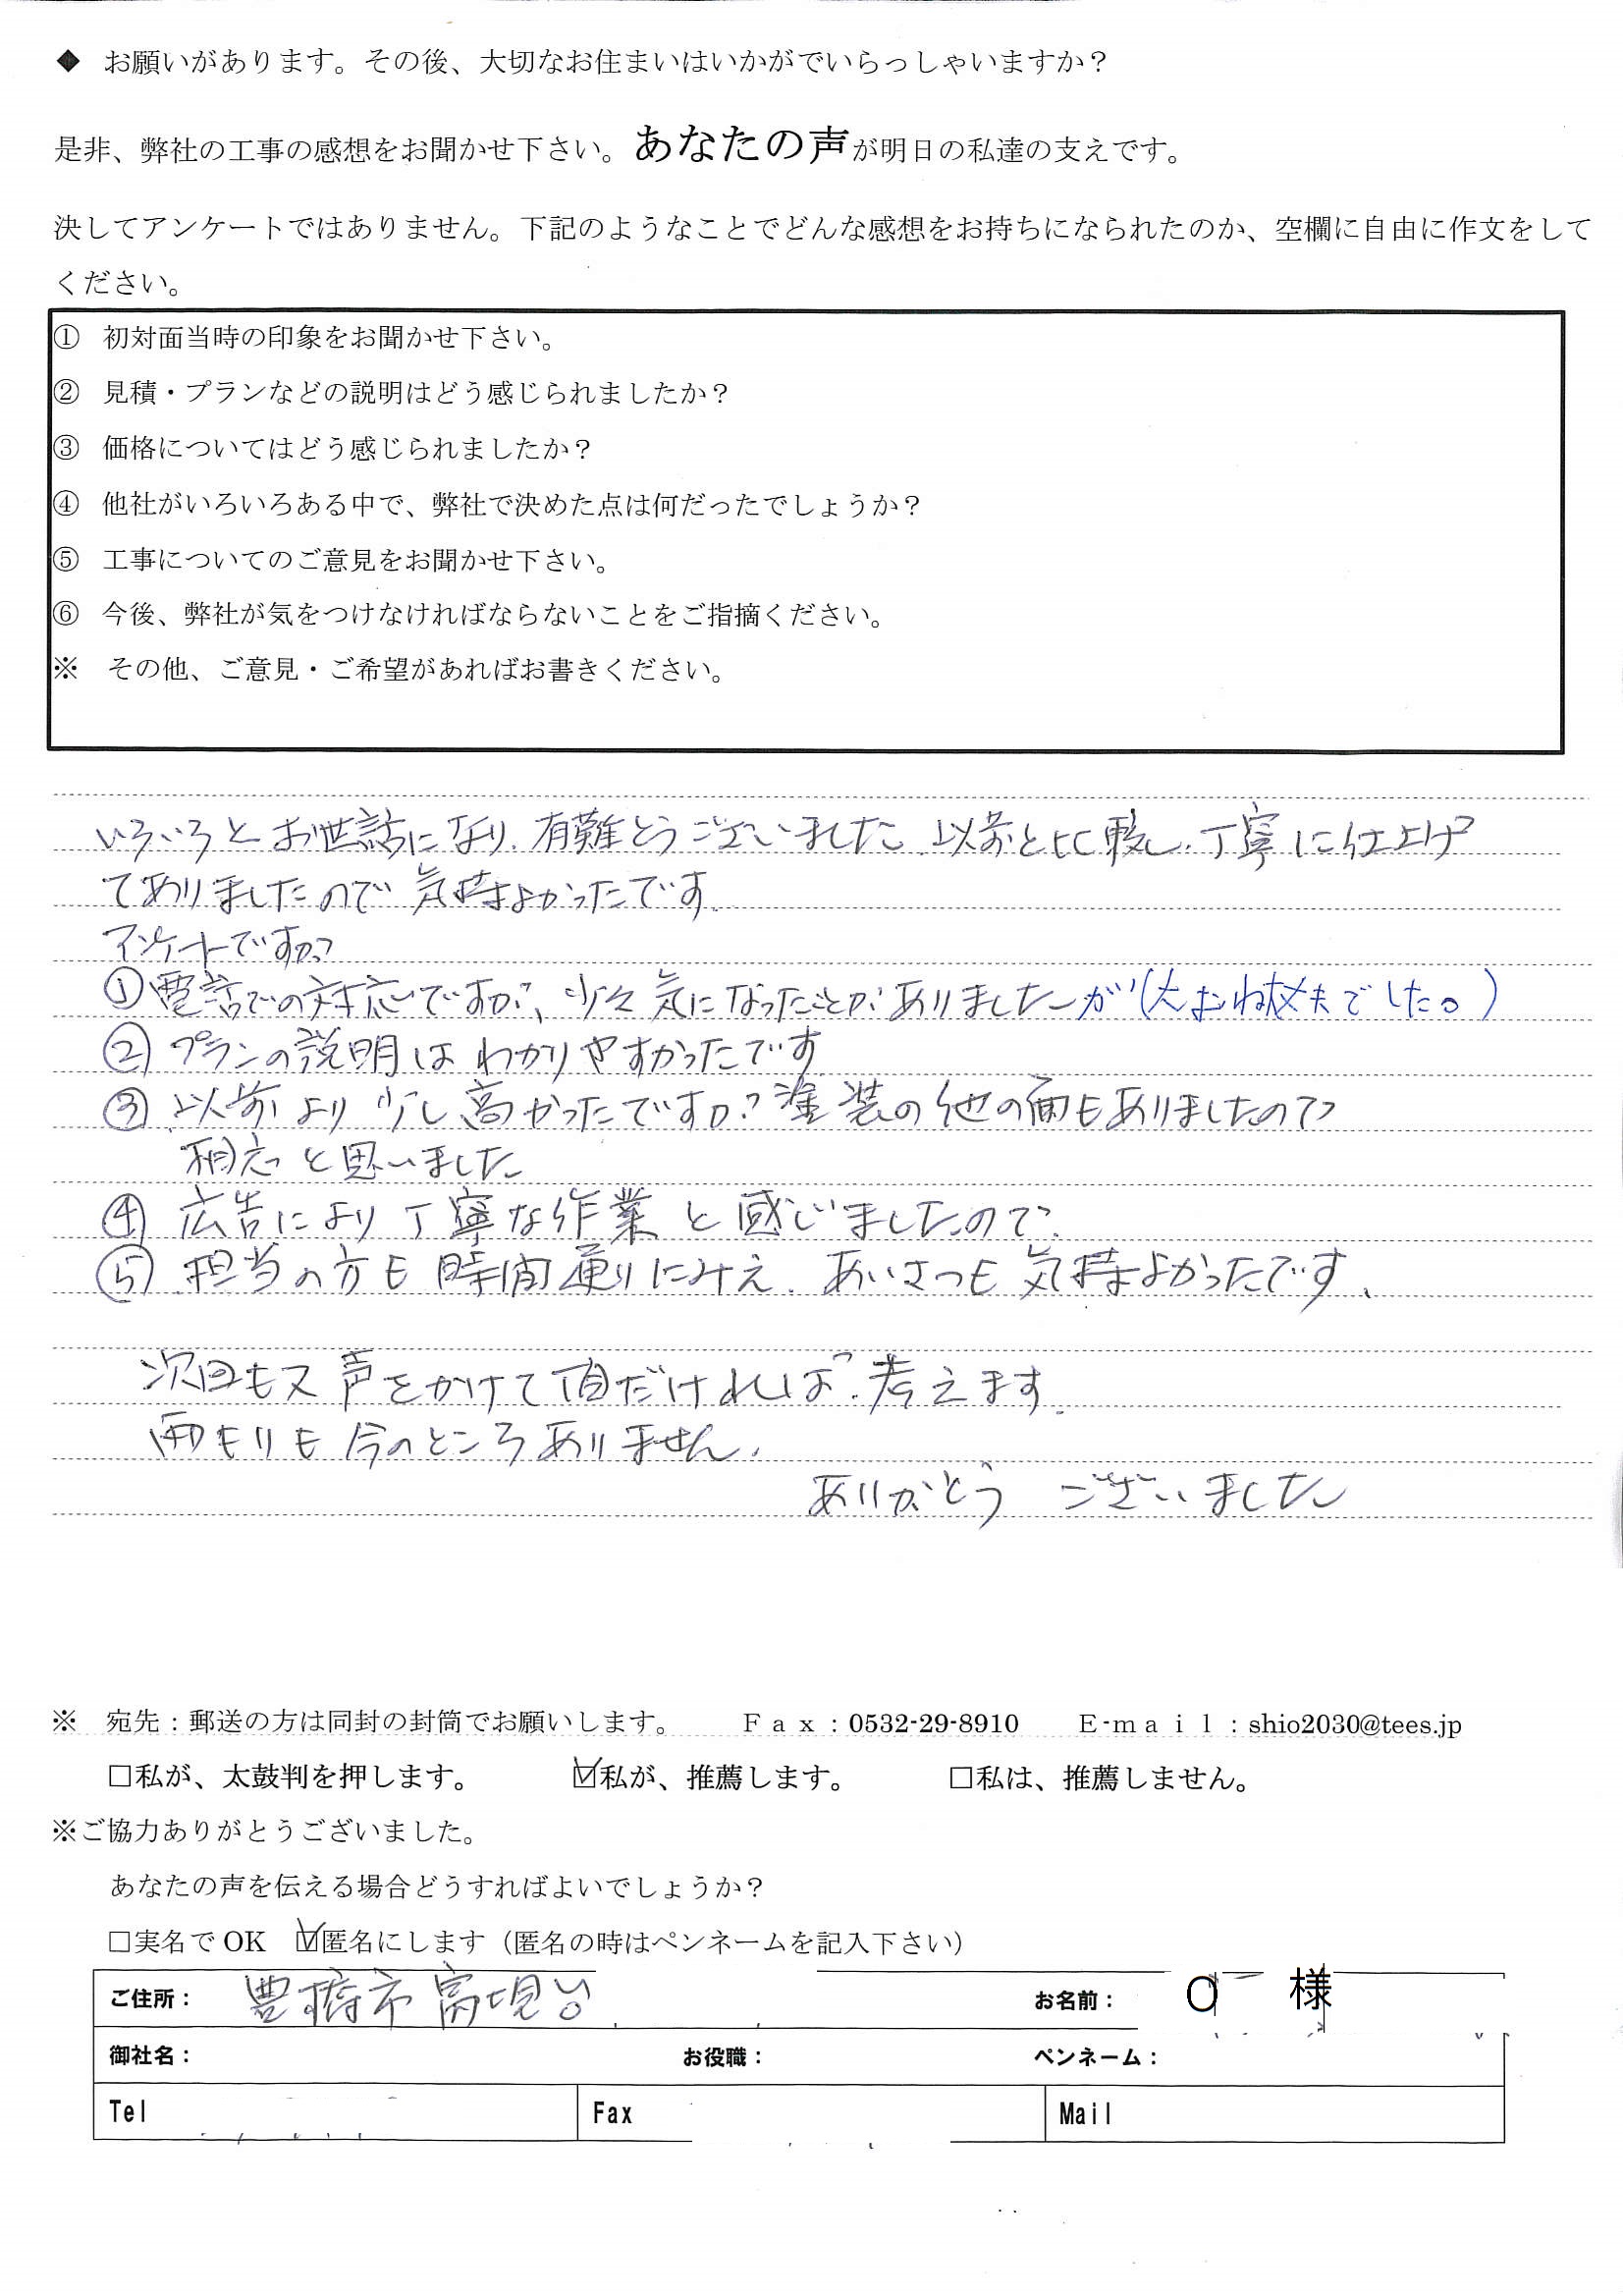 ◆ お願いがあります。その後、大切なお住まいはいかがでいらっしゃいますか？
是非、弊社の工事の感想をお聞かせ下さい。あなたの声が明日の私達の支えです。
決してアンケートではありません。下記のようなことでどんな感想をお持ちになられたのか、空欄に自由に作文をして
ください。
① 初対面当時の印象をお聞かせ下さい。
② 見積・プランなどの説明はどう感じられましたか？
③ 価格についてはどう感じられましたか？
④ 他社がいろいろある中で、弊社で決めた点は何だったでしょうか？
⑤ 工事についてのご意見をお聞かせ下さい。
⑥ 今後、弊社が気をつけなければならないことをご指摘ください。
※ その他、ご意見・ご希望があればお書きください。
いろいろとお世話になり、有難とうございました。以前と比較し、丁寧に仕上げ
てありましたので気持よかったです。
アンケートですが
①電話での対応ですが、少々気になったことがありましたが（大おね丈夫でした。）
②プランの説明はわかりやすかったです
③以前より少し高かったですが塗装の他の面もありましたので
相応と思いました
④広告により丁寧な作業と感じましたので
⑤担当の方も時間通りにみえ、あいさつも気持よかったです、
次回も又声をかけて頂だければ、考えます。
雨もりも今のところありません。
ありがとうございました
※ 宛先：郵送の方は同封の封筒でお願いします。 Ｆａｘ：0532-29-8910 Ｅ-ｍａｉｌ：shio2030@tees.jp
□私が、太鼓判を押します。 ☑私が、推薦します。 □私は、推薦しません。
※ご協力ありがとうございました。
あなたの声を伝える場合どうすればよいでしょうか？
□実名で OK ☑匿名にします（匿名の時はペンネームを記入下さい）
ご住所： 豊橋市富士見台 お名前： O 様
御社名： お役職： ペンネーム：
Tel Fax Mail